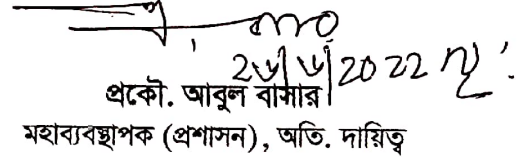 ২৬/৬/2022
প্রকৌ. আবুল বাসার
মহাব্যবস্থাপক (প্রশাসন), অতি. দায়িত্ব